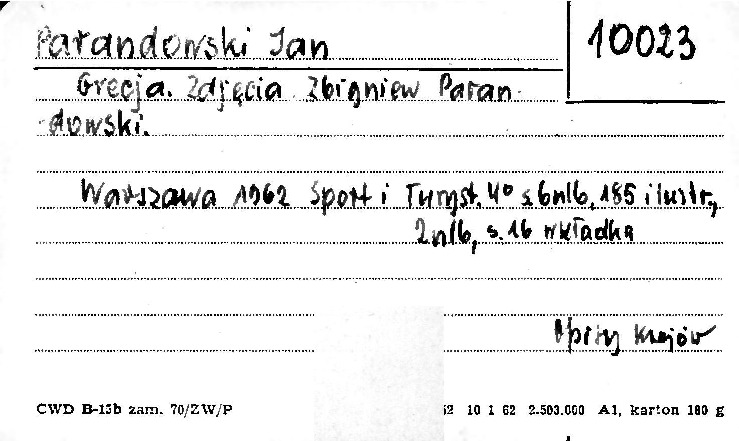 Parandowski Jan
10023
Grecja. Zdjęcia Zbigniew Paran-
-dowski.
Warszawa 1962 Sport i Turyst. 4° s. 6 nlb, 185 ilustr.,
2 nlb, s. 16 wkładka
Opisy krajów
CWD B-15b zam. 70/ZW/P
62 10 1 62 2.503.000 A1, karton 180 g